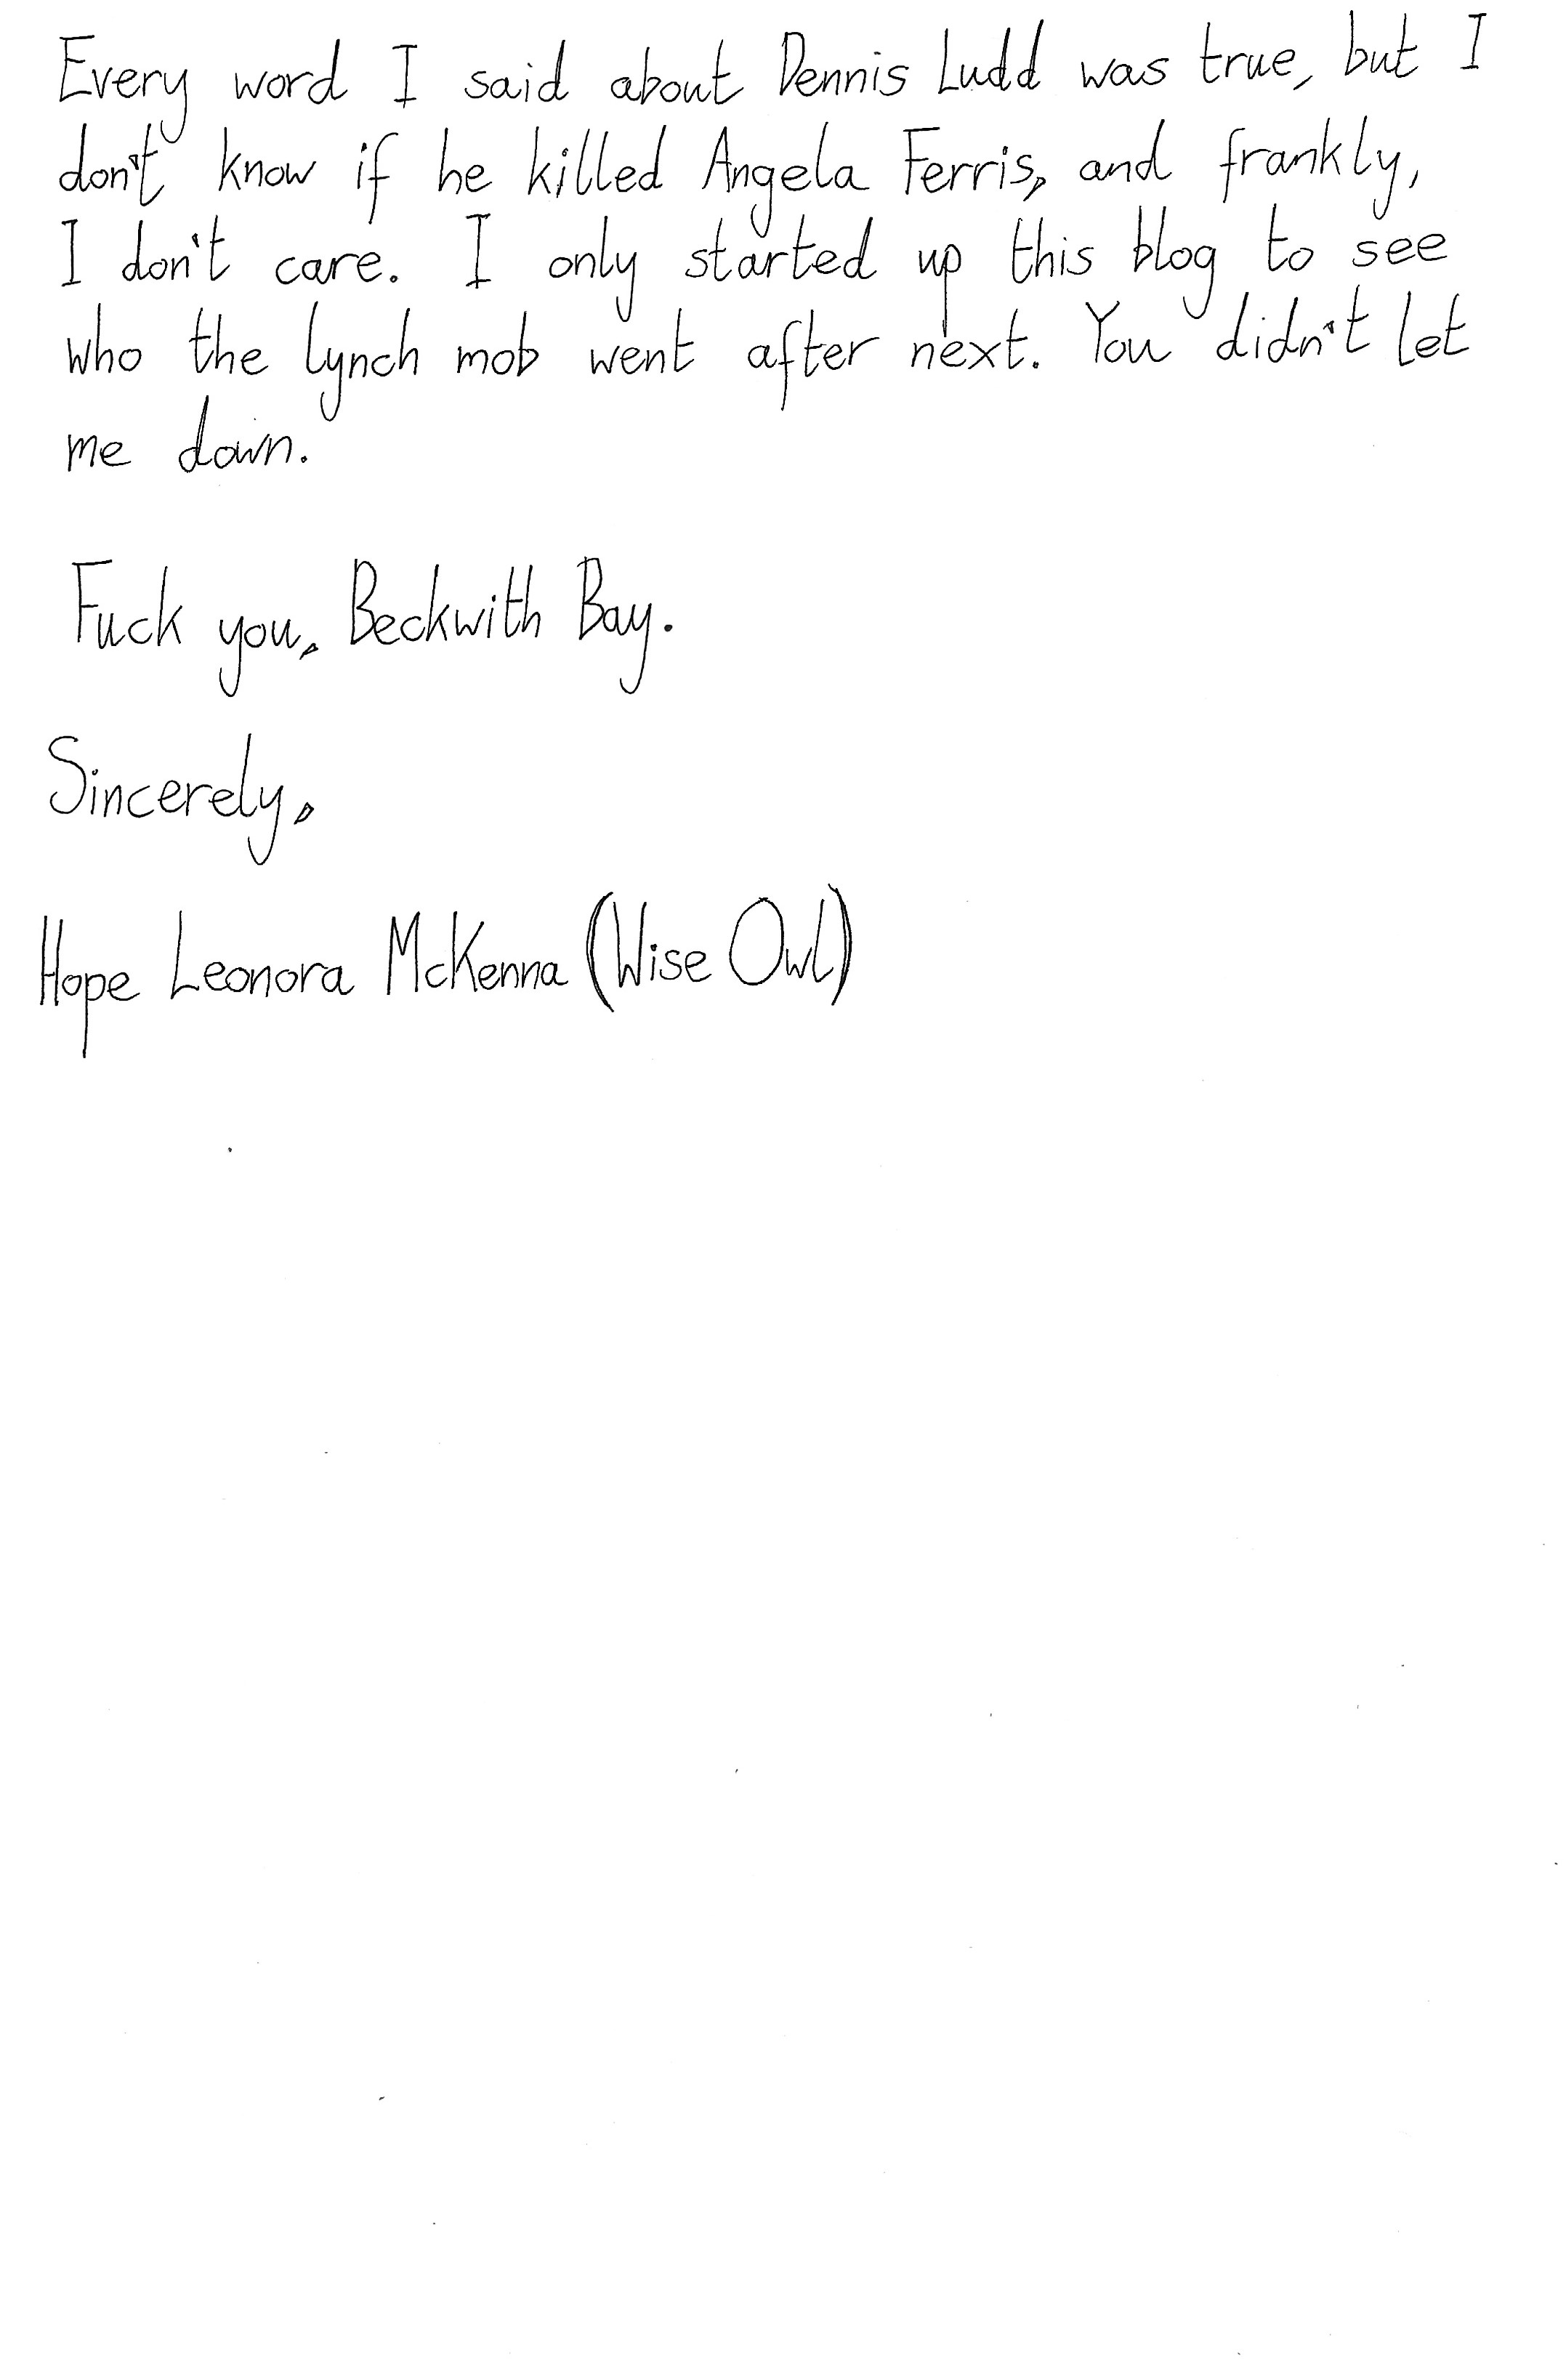 Every word I said about Dennis Ludd was true, but I
don't know if he killed Angela Ferris, and frankly,
I don't care. I only started up this blog to see
who the lynch mob went after next. You didn't let
me down.
Fuck you, Beckwith Bay.
Sincerely,
Hope Leonora McKenna (Wise Owl)